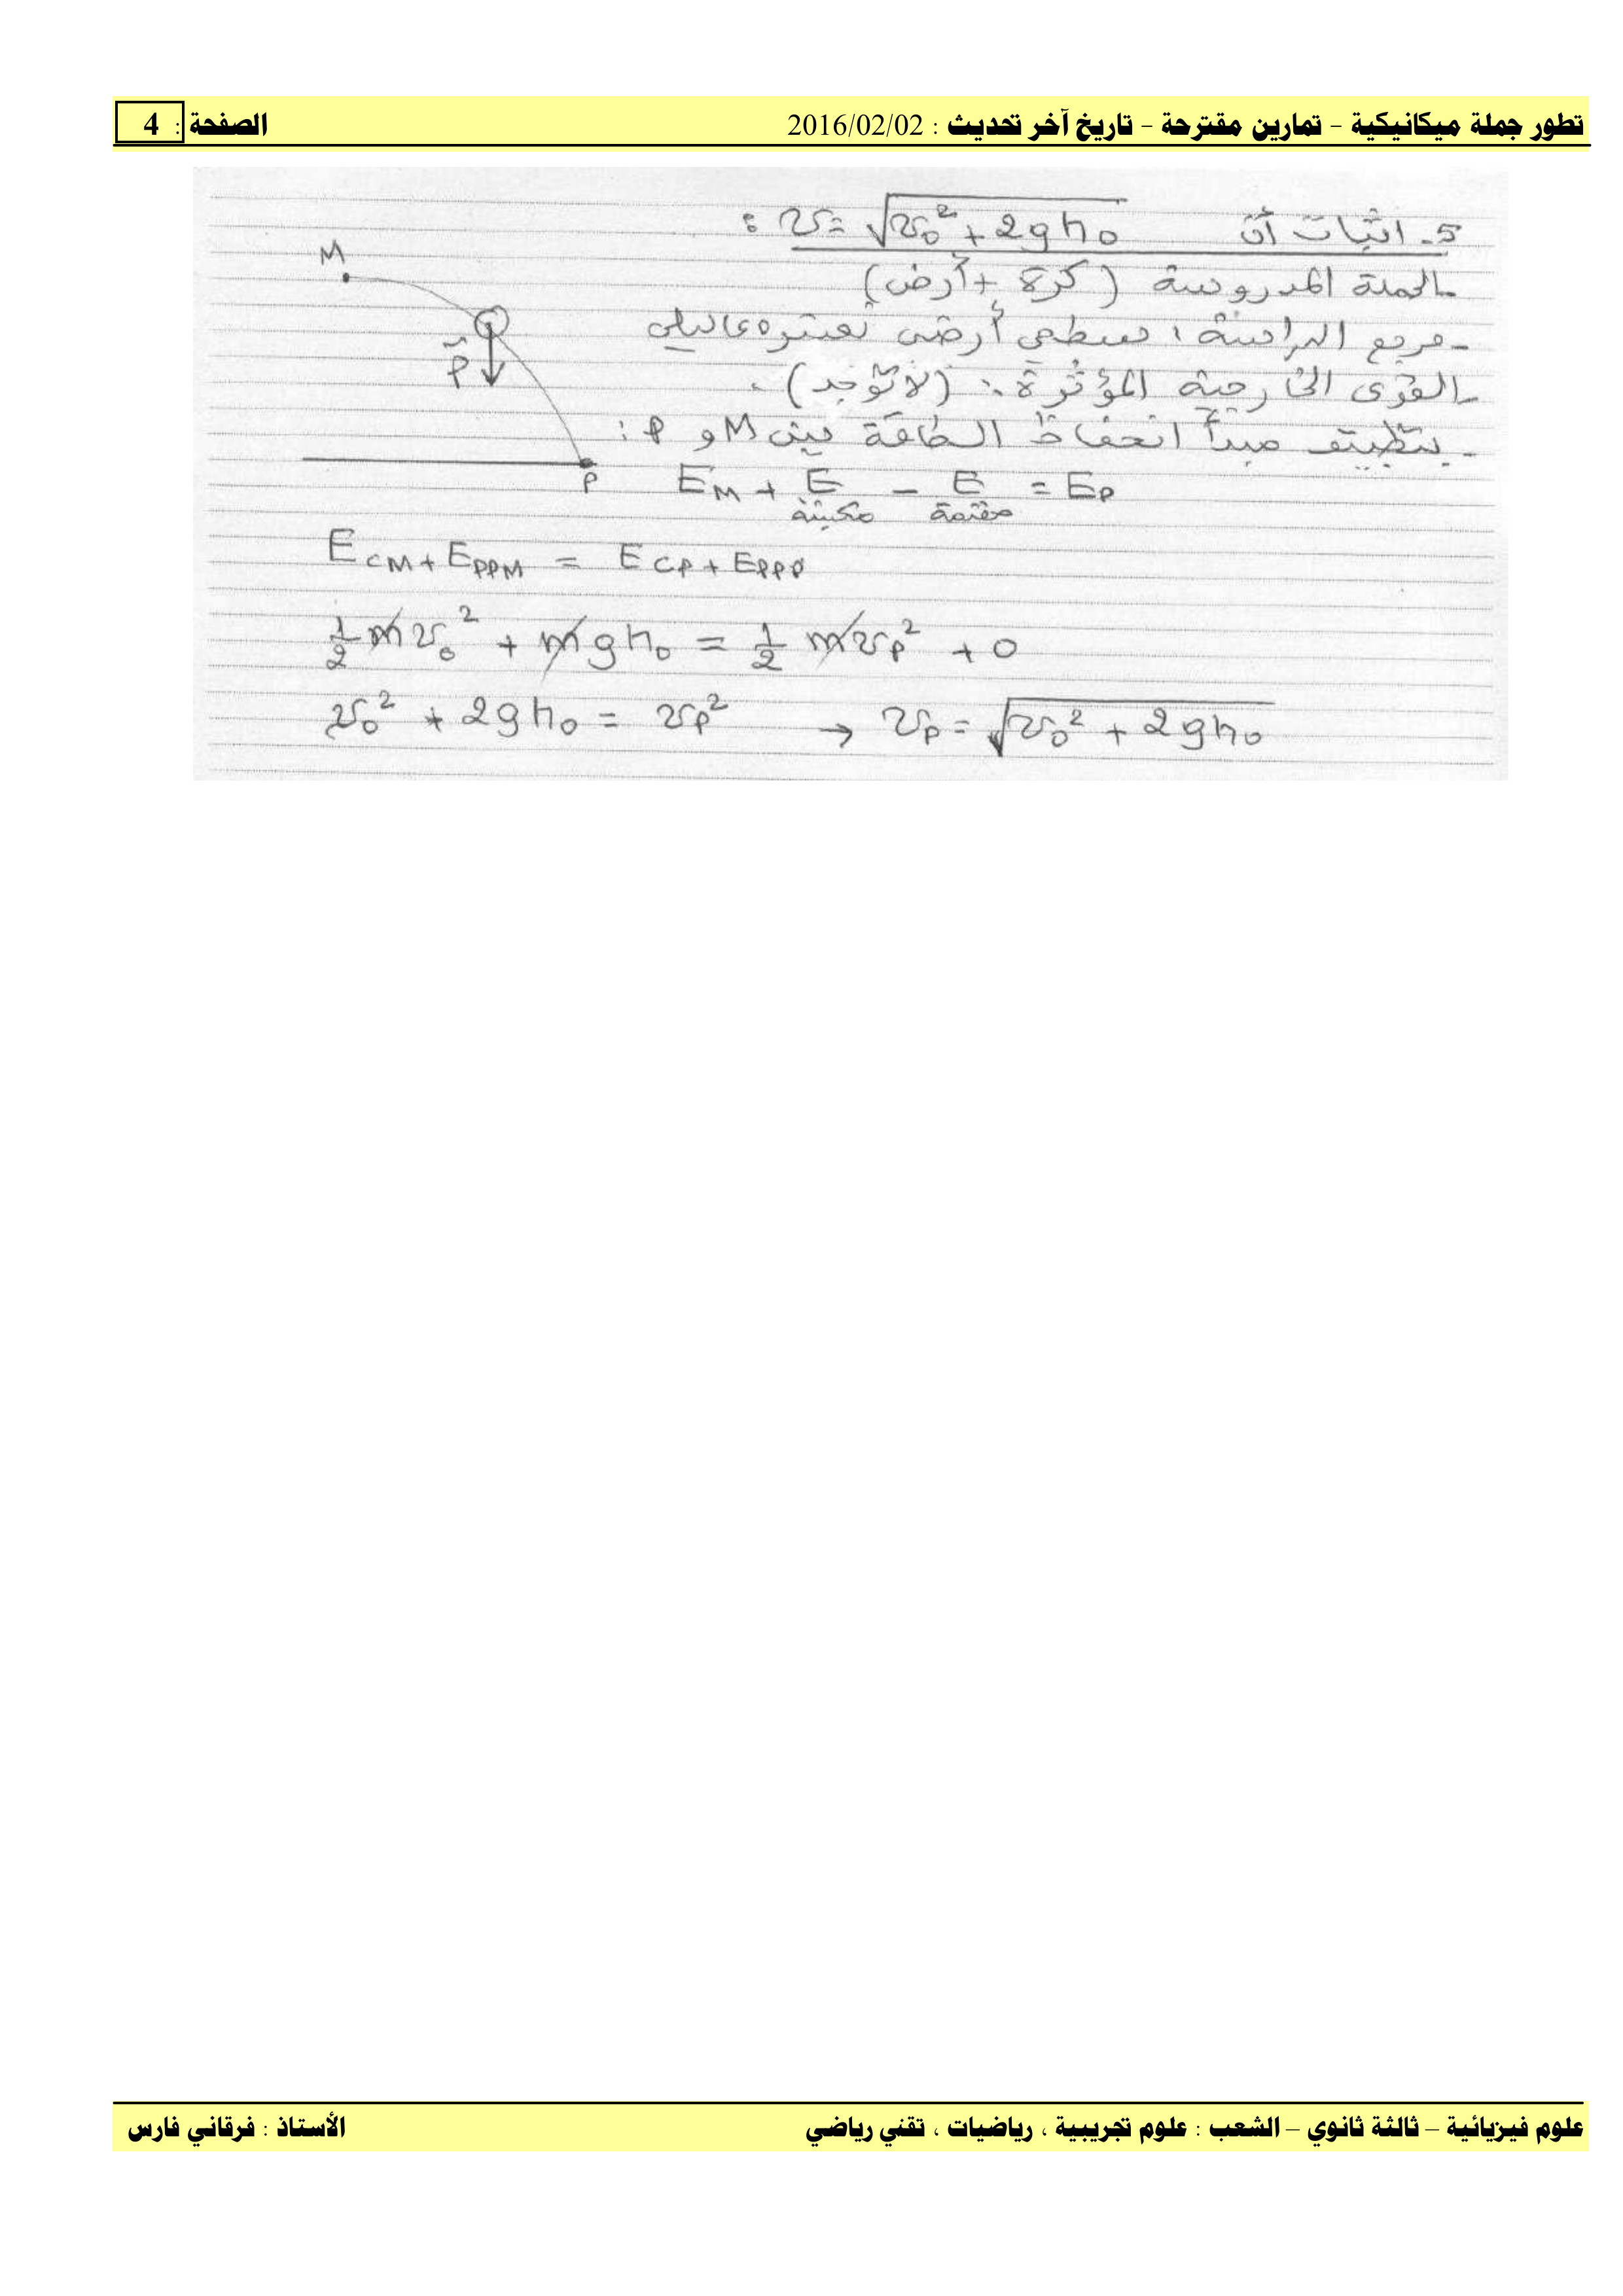 تطور جملة ميكانيكية - تمارين مقترحة - تاريخ آخر تحديث : 2016/02/02 الصفحة : 4
5- اثبات أن v = √(v₀² + 2gh₀) :
- الجملة المدروسة (كرة + أرض)
- مرجع الدراسة : سطحي أرضي نعتبره غاليلي
- القوى الخارجية المؤثرة : (لا توجد) .
- بتطبيق مبدأ انحفاظ الطاقة بين M و P :
M
P⃗
P
E_M + E مكتسبة - E مقدمة = E_P
E_CM + E_PPM = E_CP + E_PPP
½ m v₀² + m g h₀ = ½ m v_P² + 0
v₀² + 2gh₀ = v_P² → v_P = √(v₀² + 2gh₀)
علوم فيزيائية – ثالثة ثانوي – الشعب : علوم تجريبية ، رياضيات ، تقني رياضي الأستاذ : فرقاني فارس